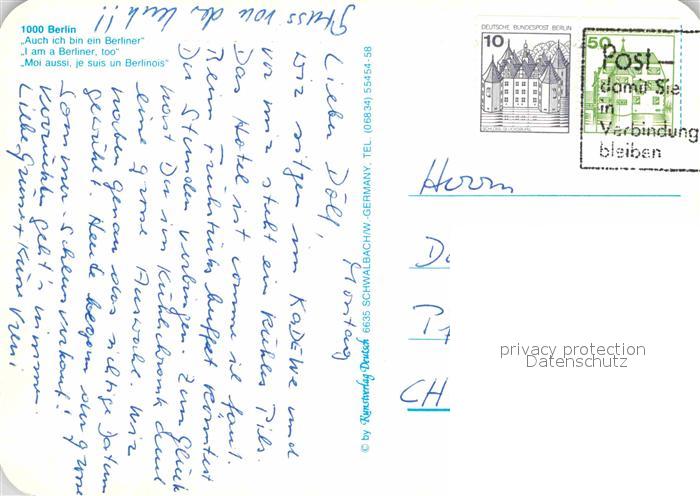 1000 Berlin
„Auch ich bin ein Berliner"
„I am a Berliner, too"
„Moi aussi, je suis un Berlinois"
Gruss von der
Montag
Lieber Dölf,
wir sitzen im KaDeWe und
vor mir steht ein kühles Pils.
Das Hotel ist
Beim Frühstücksbuffet könntest
Du Stunden verbringen. Zum Glück
hast Du im Kühlschrank auch
eine grosse Auswahl. Wir
haben genau das richtige Datum
gewählt. Heute begann der grosse
Sommer-Schlussverkauf!
Verrückter geht's nimmer.
Liebe Grüsse + Küsse Vreni
© by Kunstverlag Deutsch 6635 SCHWALBACH/W.-GERMANY, TEL. (06834) 55454-58
DEUTSCHE BUNDESPOST BERLIN
10
SCHLOSS GLÜCKSBURG
50
Post -
damit Sie
in
Verbindung
bleiben
Herrn
CH
privacy protection
Datenschutz